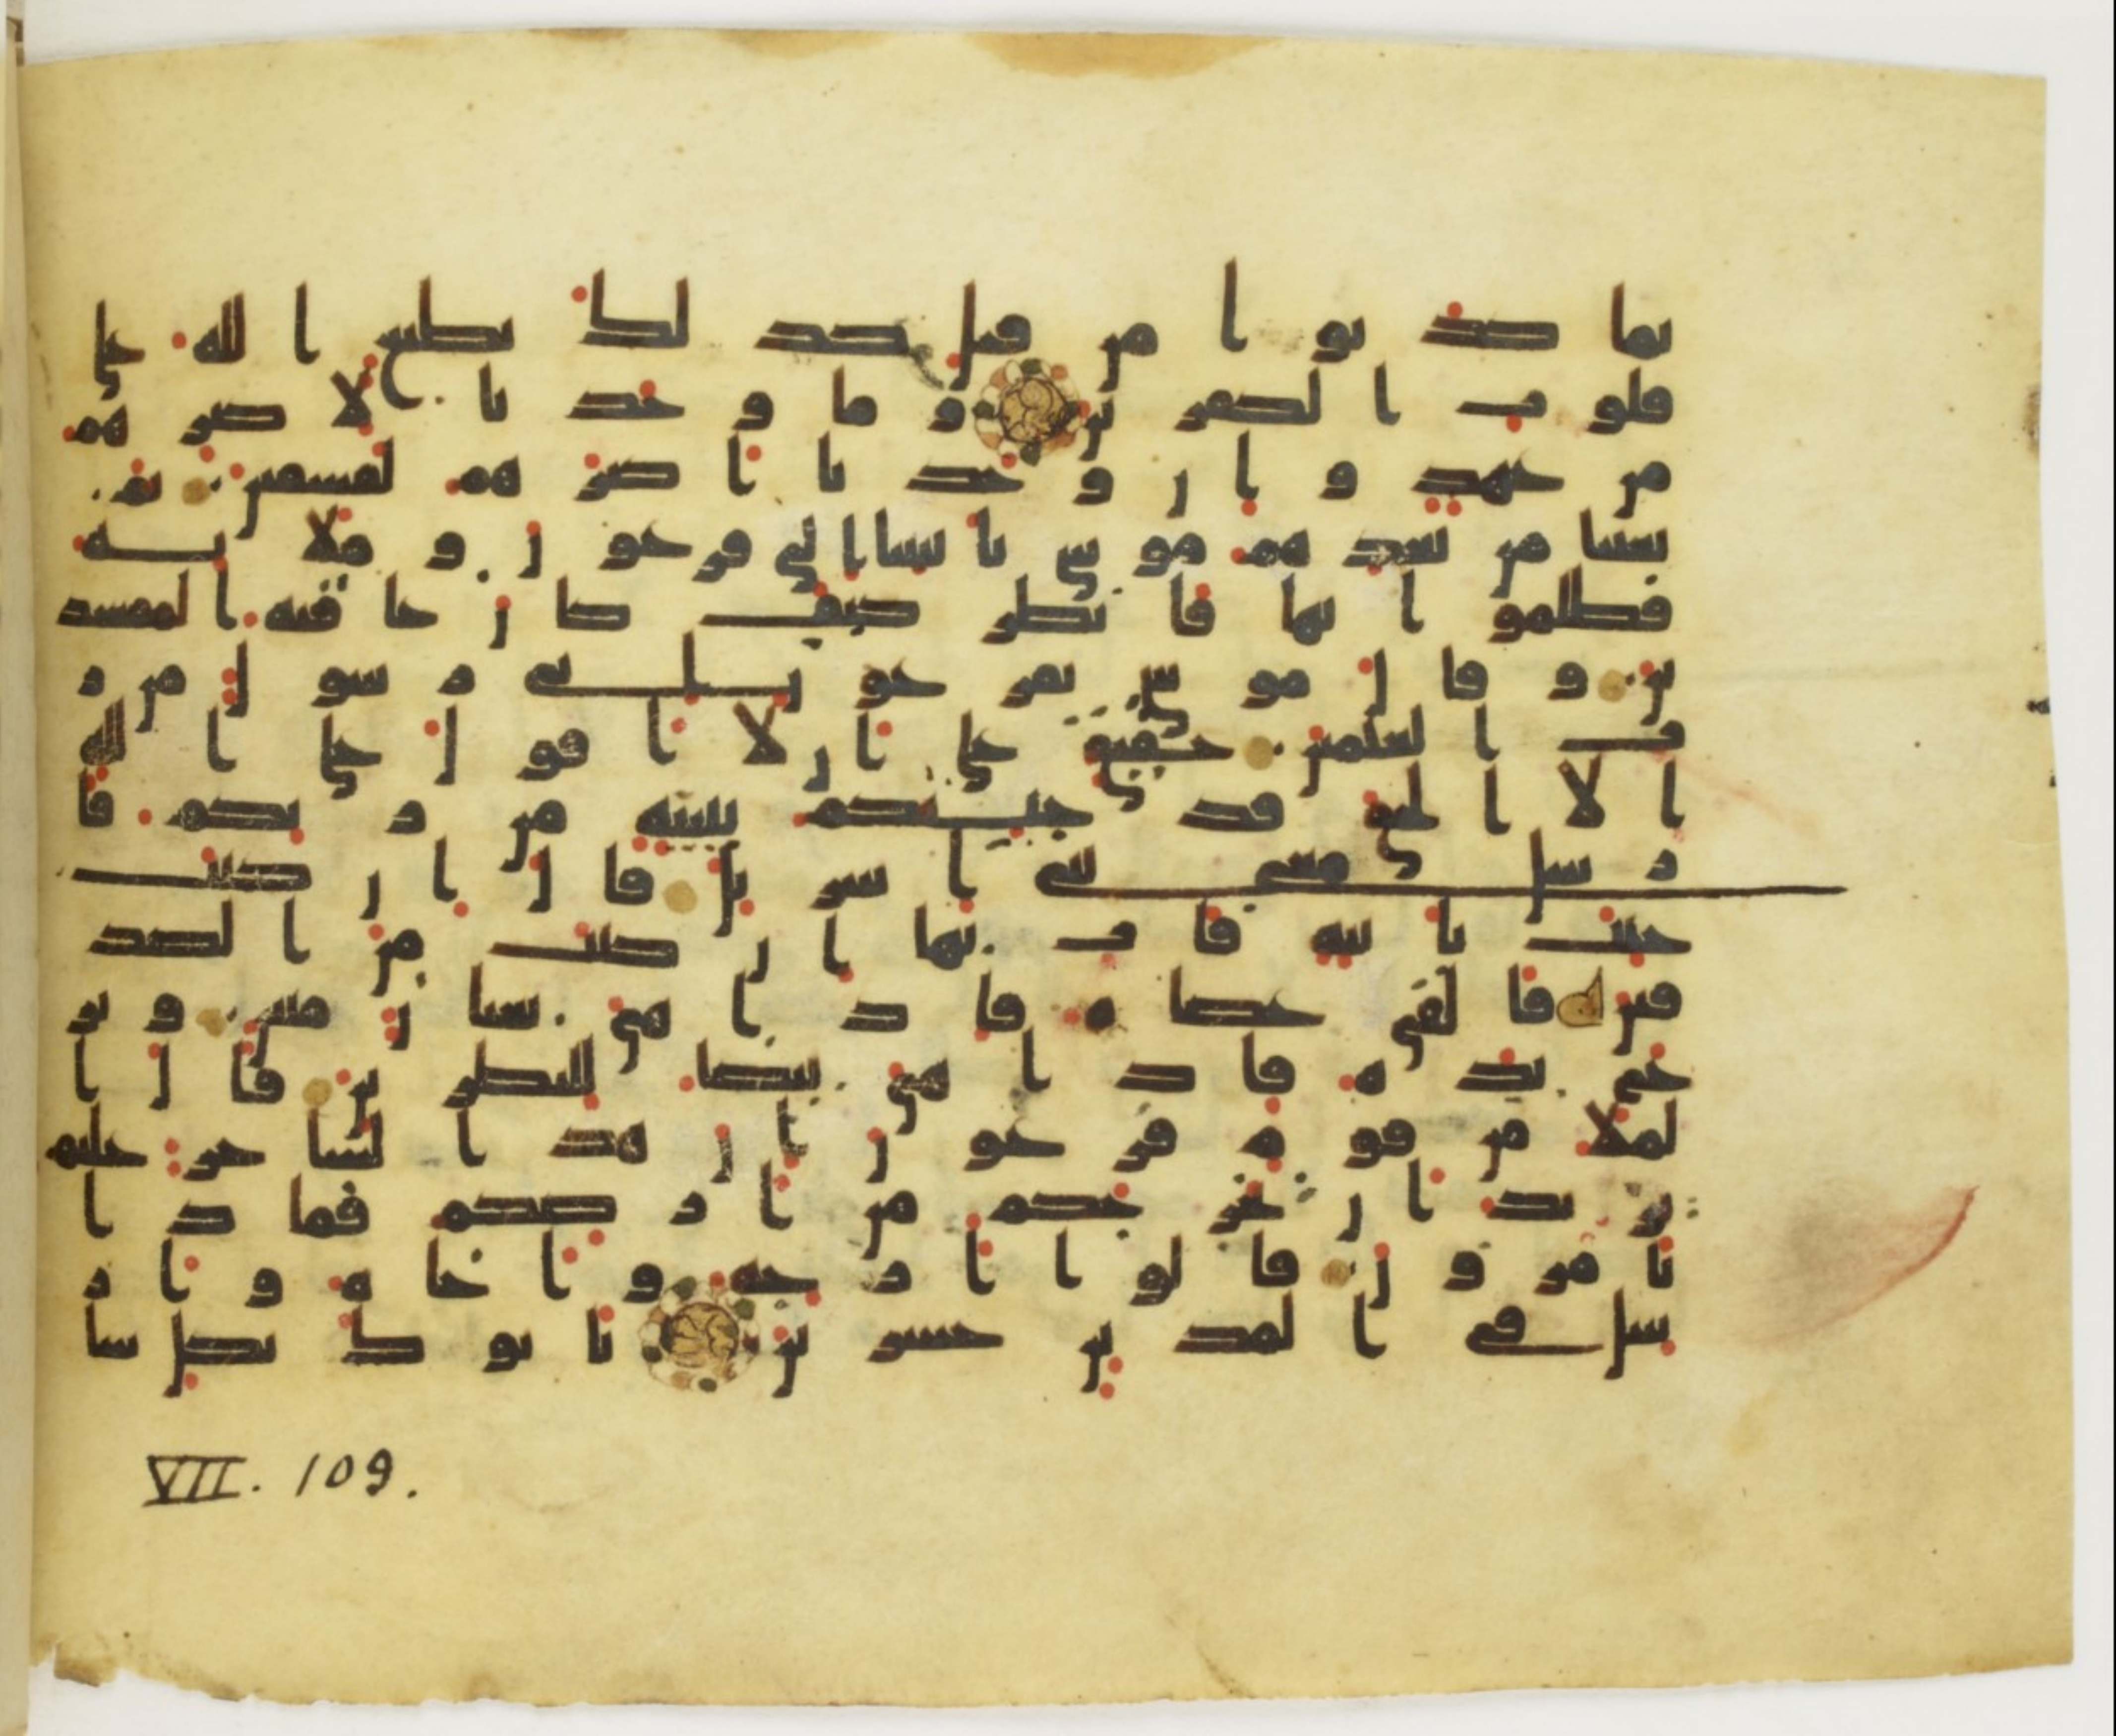 بما كذبوا من قبل كذلك يطبع الله على
قلوب الكفرين وما وجدنا لاكثرهم
من عهد وان وجدنا اكثرهم لفسقين ثم
بعثنا من بعدهم موسى بايتنا الى فرعون وملايه
فظلموا بها فانظر كيف كان عقبة المفسد
ين وقال موسى يفرعون انى رسول من ر
ب العلمين حقيق على ان لا اقول على الله
الا الحق قد جيتكم ببينة من ربكم فا
رسل معى بنى اسريل قال ان كنت
جيت باية فات بها ان كنت من الصد
قين فالقى عصاه فاذا هى ثعبان مبين ونز
ع يده فاذا هى بيضا للنظرين قال ا
لملا من قوم فرعون ان هذا لسحر عليم
يريد ان يخرجكم من ارضكم فماذا
تامرون قالوا ارجه واخاه وار
سل فى المدين حشرين ياتوك بكل سا
VII. 109.